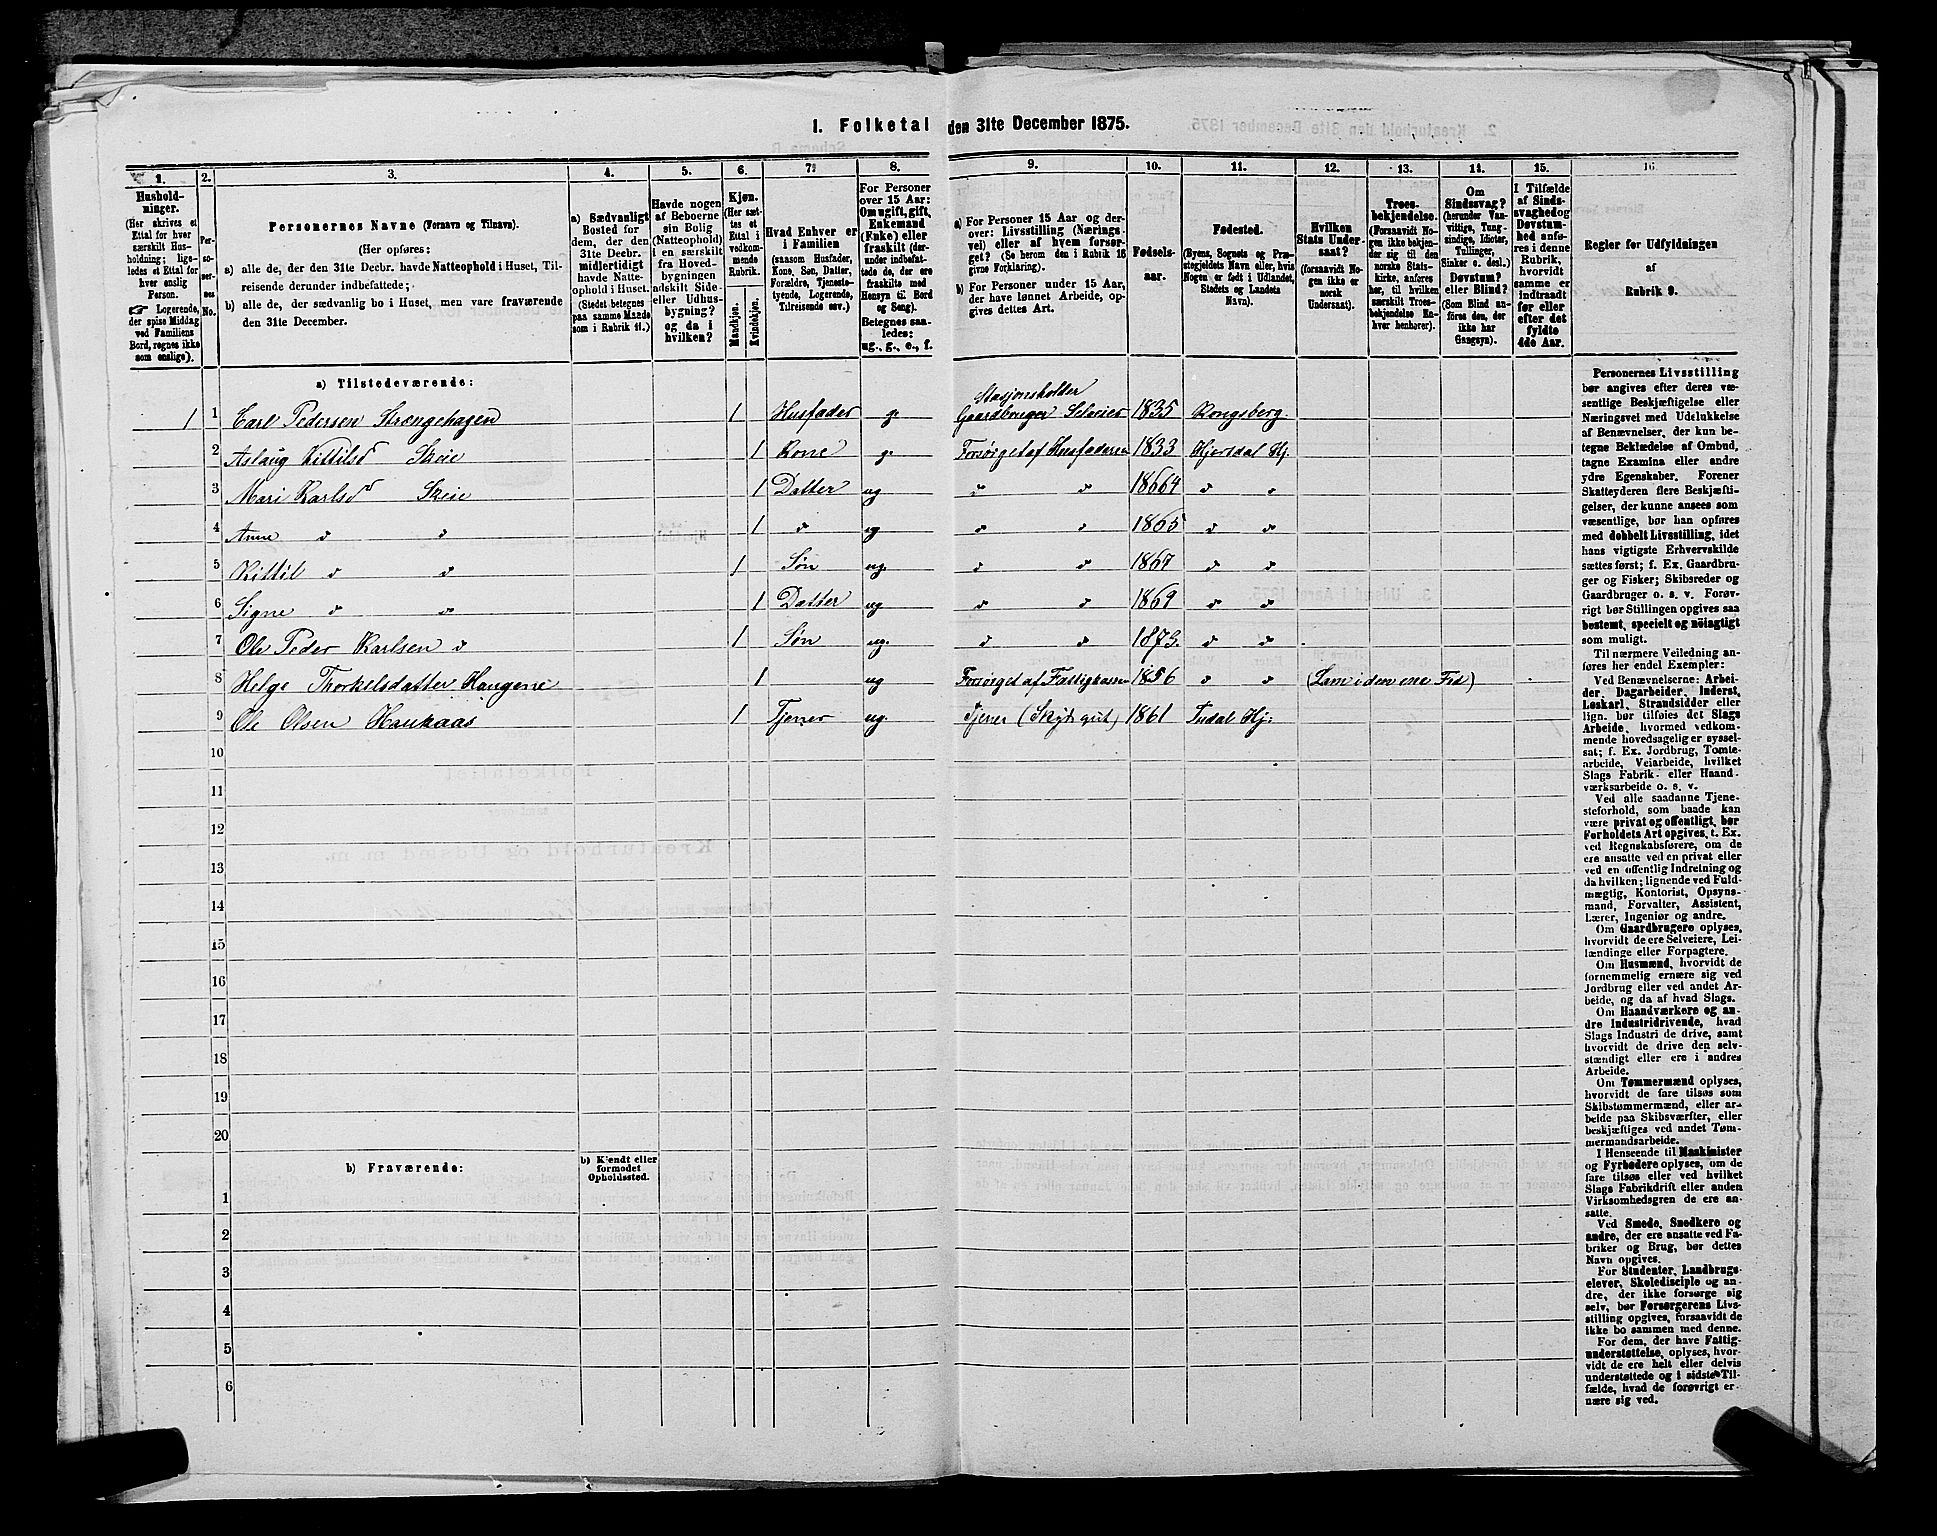 I. Folketal den 31te December 1875.
1. 2. 3. 4. 5. 6. 7. 8. 9. 10. 11. 12. 13. 14. 15. 16
Husholdninger.
(Her skrives et
Ettal for hver
særskilt Husholdning;
ligeledes et Ettal for
hver enslig
Person.
☞ Logerende,
der spise Middag
ved Familiens
Bord, regnes ikke
som enslige).
Personernes No.
Personernes Navne (Fornavn og Tilnavn).
(Her opføres:
a) alle de, der den 31te Decbr. havde Natteophold i Huset, Tilreisende derunder indbefattede;
b) alle de, der sædvanlig bo i Huset, men vare fraværende
den 31te December.
a) Sædvanligt
Bosted for
dem, der den
31te Decbr.
midlertidigt
havde Natteophold i Huset.
(Stedet betegnes
paa samme Maade
som i Rubrik 11.)
Havde nogen
af Beboerne
sin Bolig
(Natteophold)
i en særskilt
fra Hovedbygningen
adskilt Side-
eller Udhusbygning?
og da i
hvilken?
Kjøn.
(Her sættes et
Ettal i
vedkommende
Rubrik.
Mandkjøn.
Kvindekjøn.
Hvad Enhver er
i Familien
(saasom Husfader,
Kone, Søn, Datter,
Forældre, Tjenestetyende, Logerende,
Tilreisende osv.)
For Personer
over 15 Aar:
Om ugift, gift,
Enkemand
(Enke) eller
fraskilt (derunder indbefattede de, der ere
fraskilte med
Hensyn til Bord
og Seng).
Betegnes saaledes:
ug., g., e., f.
a) For Personer 15 Aar og derover: Livsstilling (Næringsvei) eller af hvem forsørget? (Se herom den i Rubrik 16
givne Forklaring).
b) For Personer under 15 Aar,
der have lønnet Arbeide, opgives dettes Art.
Fødselsaar.
Fødested.
(Byens, Sognets og Præstegjeldets Navn eller, hvis
Nogen er født i Udlandet,
Stedets og Landets
Navn).
Hvilken
Stats Undersaat?
(forsaavidt Nogen ikke er
norsk
Undersaat).
Troesbekjendelse.
(Forsaavidt Nogen ikke bekjender sig til den
norske Statskirke, anføres
her, til hvilken
særskilt Troesbekjendelse Enhver henhører).
Om
Sindssvag?
(herunder Vanvittige, Tungsindige, Idioter,
Tullinger,
Sinker o. desl.).
Døvstum?
eller Blind?
(Som Blind anføres den, der
ikke har
Gangsyn).
I Tilfælde
af Sindssvaghed og
Døvstumhed anføres i denne
Rubrik,
hvorvidt
samme er
indtraadt
før eller
efter det
fyldte
4de Aar.
Regler for Udfyldningen
af
Rubrik 9.
a) Tilstedeværende:
Stasjonsholder
1 1 Carl Pedersen Strengehagen 1 Husfader g. Gaardbruger Selveier 1835 Kongsberg.
2 Aslaug Kittilsd Skeie 1 Kone g. Forsørget af Husfaderen 1833 Hjertdal Hj.
3 Mari Karlsd Skeie 1 Datter ug " " 1864 " "
4 Anne " " 1 " ug " " 1865 " "
5 Kittil " " 1 Søn ug. " " 1867 " "
6 Signe " " 1 Datter ug " " 1869 " "
7 Ole Peder Karlsen " 1 Søn ug. " " 1873. " "
8 Helge Thorkelsdatter Haugene 1 ug Forsørget af Fattigkassen 1856 " " (Lam i den ene Fod)
9 Ole Olsen Haukaas 1 Tjener ug. Tjener (Skydsgut) 1861 Tudal Hj:
10
11
12
13
14
15
16
17
18
19
20
b) Fraværende:
b) Kjendt eller
formodet
Opholdssted.
1
2
3
4
5
6
Personernes Livsstilling
bør angives efter deres væsentlige Beskjæftigelse eller
Næringsvei med Udelukkelse
af Benævnelser, der kun betegne Beklædelse af Ombud,
tagne Examina eller andre
ydre Egenskaber. Forener
Skatteyderen flere Beskjæftigelser, der kunne ansees som
væsentlige, bør han opføres
med dobbelt Livsstilling, idet
hans vigtigste Erhvervskilde
sættes først; f. Ex. Gaardbruger og Fisker; Skibsreder og
Gaardbruger o. s. v. Forøvrigt bør Stillingen opgives saa
bestemt, specielt og nøiagtigt
som muligt.
Til nærmere Veiledning anføres her endel Exempler:
Ved Benævnelserne: Arbeider, Dagarbeider, Inderst,
Løskarl, Strandsidder eller
lign. bør tilføies det Slags
Arbeide, hvormed vedkommende hovedsagelig er sysselsat; f. Ex. Jordbrug, Tomtearbeide, Veiarbeide, hvilket
Slags Fabrik- eller Haandværksarbeide o. s. v.
Ved alle saadanne Tjenesteforhold, som baade kan
være privat og offentligt, bør
Forholdets Art opgives, t. Ex.
ved Regnskabsførere, om de
ere ansatte ved en privat eller
ved en offentlig Indretning og
da hvilken; lignende ved Fuldmægtig, Kontorist, Opsynsmand, Forvalter, Assistent,
Lærer, Ingeniør og andre.
Om Gaardbrugere oplyses,
hvorvidt de ere Selveiere, Leilændinge eller Forpagtere.
Om Husmænd, hvorvidt de
fornemmelig ernære sig ved
Jordbrug eller ved andet Arbeide, og da af hvad Slags.
Om Haandværkere og andre Industridrivende, hvad
Slags Industri de drive, samt
hvorvidt de drive den selvstændigt eller ere i andres
Arbeide.
Om Tømmermænd oplyses,
hvorvidt de fare tilsøs som
Skibstømmermænd, eller arbeide paa Skibsværfter, eller
beskjæftiges ved andet Tømmermandsarbeide.
I Henseende til Maskinister
og Fyrbødere oplyses, om de
fare tilsøs eller ved hvilket
Slags Fabrikdrift eller anden
Virksomhedsgren de ere ansatte.
Ved Smede, Snedkere og
andre, der ere ansatte ved Fabriker og Brug, bør dettes
Navn opgives.
For Studenter, Landbrugselever, Skoledisciple og andre, der ikke forsørge sig
selv, bør Forsørgerens Livsstilling opgives, forsaavidt de
ikke bo sammen med denne.
For dem, der have Fattigunderstøttelse, oplyses, hvorvidt de ere helt eller delvis
understøttede og i sidste Tilfælde, hvad de forøvrigt ernære sig ved.